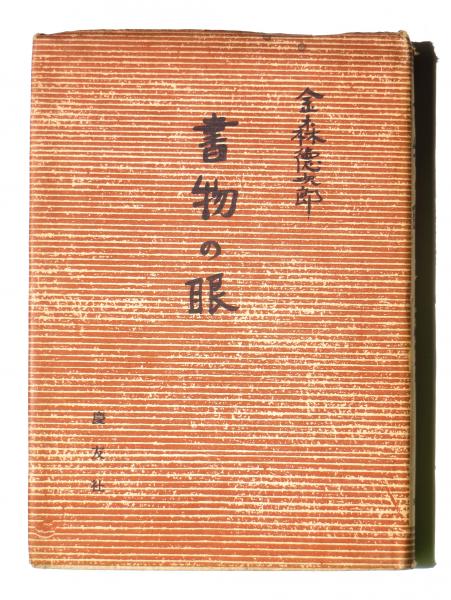 金森德次郎
書物の眼
慶友社